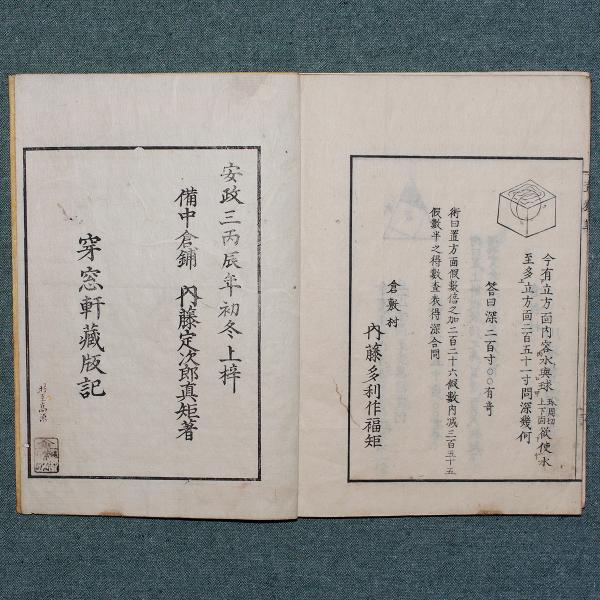 今有立方面内容水與球 五周切上下面 欲使水
至多立方面二百五十一寸問深幾何
答曰深二百寸〇〇有奇
術曰置方面假數倍之加二百二十六假數内減三百五十五
假數半之得數査表得深合問
倉敷村
内藤多利作福矩
安政三丙辰年初冬上梓
備中倉鋪 内藤定次郎真矩著
穿窓軒藏版記